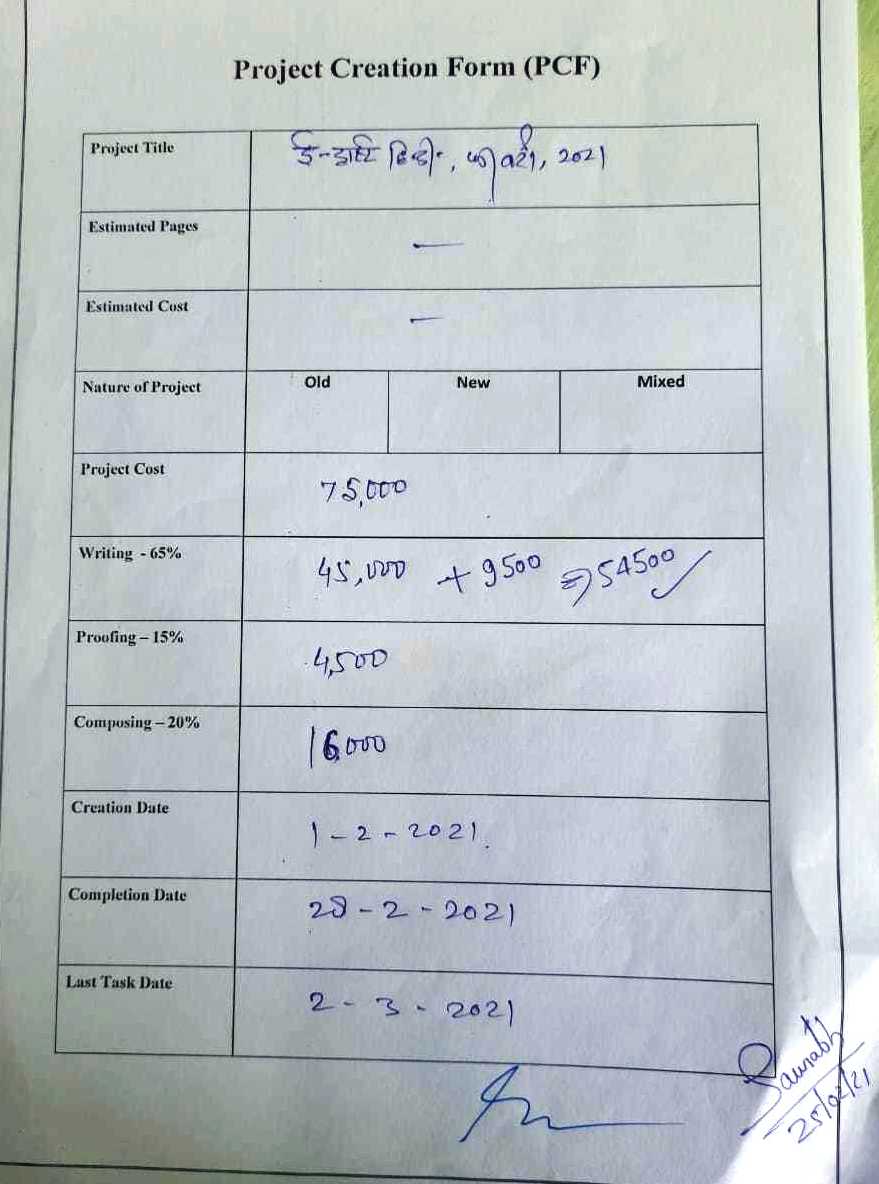 Project Creation Form (PCF)
Project Title ई-दृष्टि हिन्दी, फरवरी, 2021
Estimated Pages —
Estimated Cost —
Nature of Project Old New Mixed
Project Cost 75,000
Writing - 65% 45,000 + 9500 => 54500 ✓
Proofing – 15% 4,500
Composing – 20% 16000
Creation Date 1-2-2021.
Completion Date 28-2-2021
Last Task Date 2-3-2021
Saurabh
25/02/21